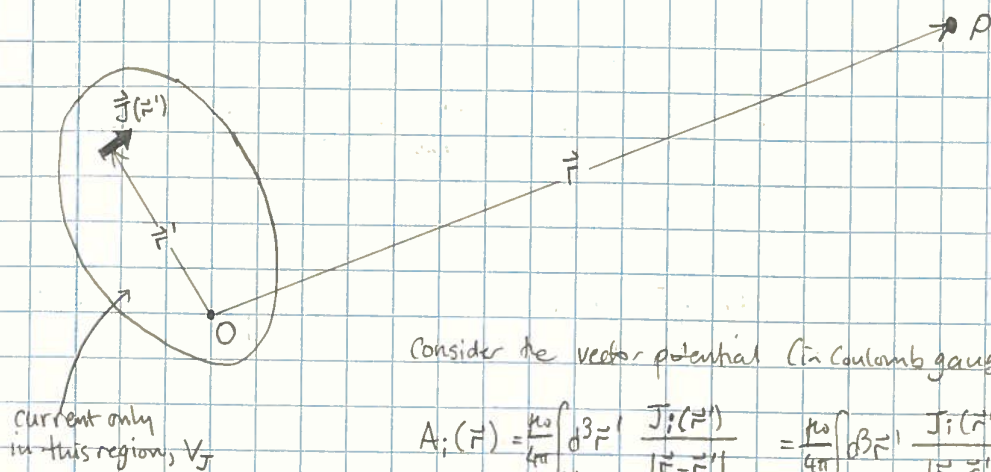 P
J⃗(r⃗')
r⃗
r⃗'
O
Consider the vector potential (in Coulomb gaug
current only
in this region, V_J
A_i(r⃗) = μ₀/4π ∫ d³r⃗' J_i(r⃗')/|r⃗-r⃗'| = μ₀/4π ∫ d³r⃗' J_i(r⃗'